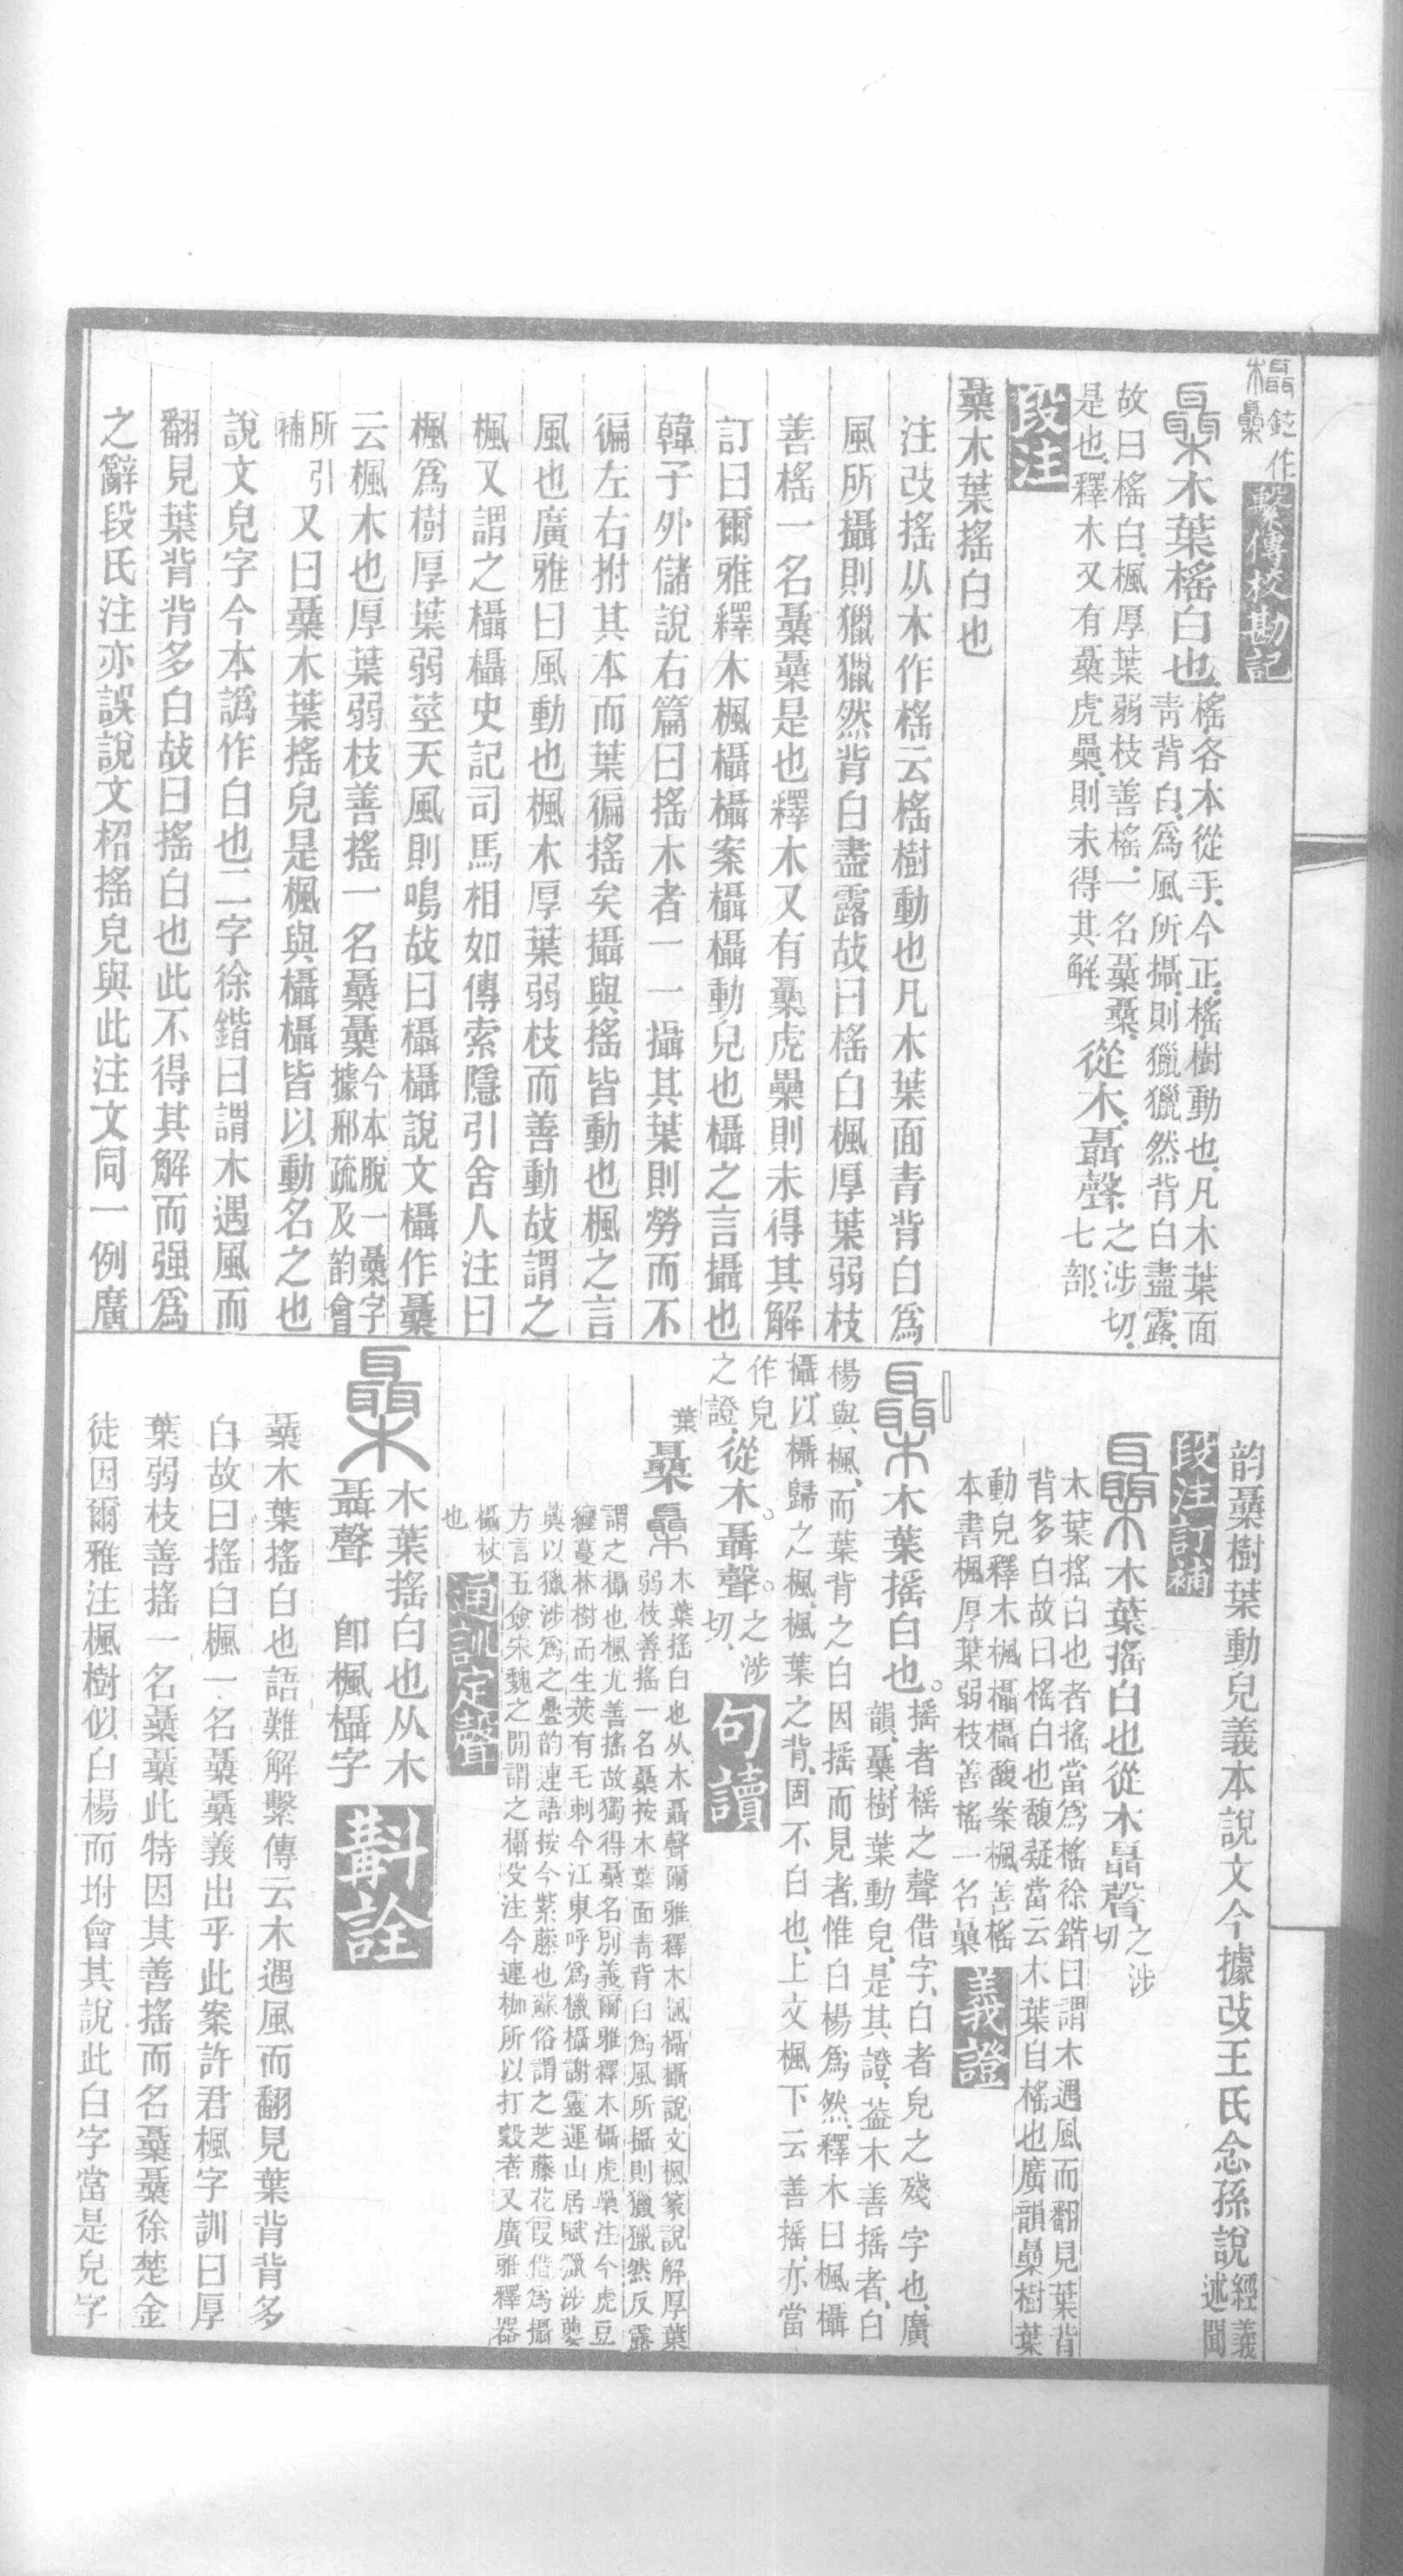 欇鉉作櫐
繫傳校勘記
櫐木葉榣白也
榣各本從手今正榣樹動也凡木葉面
青背白爲風所攝則獵獵然背白盡露
故曰榣白楓厚葉弱枝善榣一名櫐櫐從木聶聲之涉切
是也釋木又有櫐虎櫐則未得其解七部
段注
櫐木葉搖白也
注改搖从木作榣云榣樹動也凡木葉面青背白爲
風所攝則獵獵然背白盡露故曰榣白楓厚葉弱枝
善榣一名櫐櫐是也釋木又有櫐虎櫐則未得其解
訂曰爾雅釋木楓欇欇案欇欇動皃也欇之言攝也
韓子外儲說右篇曰搖木者一一攝其葉則勞而不
徧左右拊其本而葉徧搖矣攝與搖皆動也楓之言
風也廣雅曰風動也楓木厚葉弱枝而善動故謂之
楓又謂之欇欇史記司馬相如傳索隱引舍人注曰
楓爲樹厚葉弱莖天風則鳴故曰欇欇說文欇作櫐
云楓木也厚葉弱枝善搖一名櫐櫐今本脫一櫐字據邢疏及韵會
所引補又曰櫐木葉搖皃是楓與欇欇皆以動名之也
說文皃字今本譌作白也二字徐鍇曰謂木遇風而
翻見葉背背多白故曰搖白也此不得其解而强爲
之辭段氏注亦誤說文柖搖皃與此注文同一例廣
韵櫐樹葉動皃義本說文今據改王氏念孫說經義述聞
段注訂補
櫐木葉搖白也從木聶聲之涉切
木葉搖白也者搖當爲榣徐鍇曰謂木遇風而翻見葉背
背多白故曰榣白也馥疑當云木葉自榣也廣韻櫐樹葉
動皃釋木楓欇欇馥案楓善榣
本書楓厚葉弱枝善榣一名櫐
義證
櫐木葉搖白也。
搖者榣之聲借字白者皃之殘字也廣
韻櫐樹葉動皃是其證葢木善搖者白
楊與楓而葉背之白因搖而見者惟白楊爲然釋木曰楓欇
欇以欇歸之楓楓葉之背固不白也上文楓下云善搖亦當
作皃之證從木。聶聲。之涉切
句讀
葉
櫐
木葉搖白也从木聶聲爾雅釋木楓欇欇說文楓篆說解厚葉
弱枝善搖一名櫐按木葉面青背白爲風所攝則獵獵然反露
謂之欇也楓尤善搖故獨得櫐名別義爾雅釋木欇虎櫐注今虎豆
纏蔓林樹而生莢有毛刺今江東呼爲櫐欇謝靈運山居賦獵涉蘡
薁以獵涉爲之疊韵連語按今紫藤也蘇俗謂之芝藤花叚借爲攝
方言五僉宋魏之閒謂之欇殳注今連枷所以打穀者又廣雅釋器
欇杖也
通訓定聲
櫐木葉搖白也从木
聶聲 卽楓欇字
斠詮
櫐木葉搖白也語難解繫傳云木遇風而翻見葉背背多
白故曰搖白楓一名櫐櫐義出乎此案許君楓字訓曰厚
葉弱枝善搖一名櫐櫐此特因其善搖而名櫐櫐徐楚金
徒因爾雅注楓樹似白楊而坿會其說此白字當是皃字